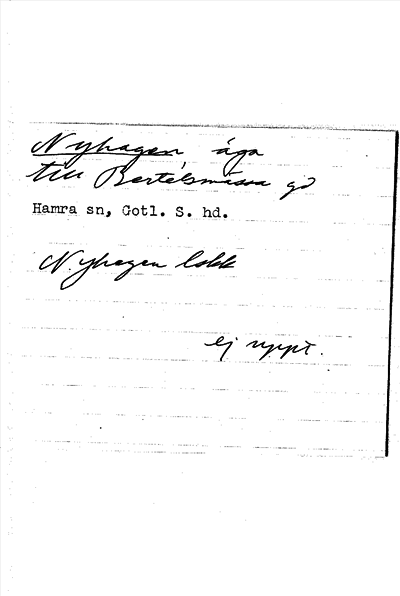 Nyhagen, äga
till Bertelsmässa gd
Hamra sn, Gotl. S. hd.
Nyhagen lokk
ej uppt.